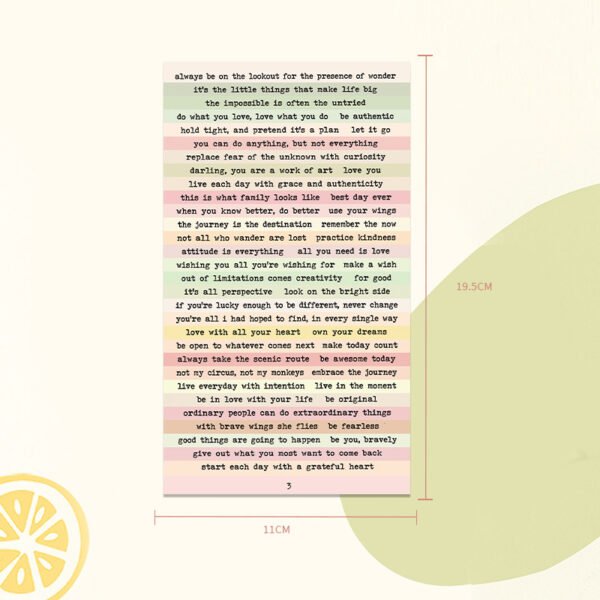 always be on the lookout for the presence of wonder
it's the little things that make life big
the impossible is often the untried
do what you love, love what you do be authentic
hold tight, and pretend it's a plan let it go
you can do anything, but not everything
replace fear of the unknown with curiosity
darling, you are a work of art love you
live each day with grace and authenticity
this is what family looks like best day ever
when you know better, do better use your wings
the journey is the destination remember the now
not all who wander are lost practice kindness
attitude is everything all you need is love
wishing you all you're wishing for make a wish
out of limitations comes creativity for good
it's all perspective look on the bright side
if you're lucky enough to be different, never change
you're all i had hoped to find, in every single way
love with all your heart own your dreams
be open to whatever comes next make today count
always take the scenic route be awesome today
not my circus, not my monkeys embrace the journey
live everyday with intention live in the moment
be in love with your life be original
ordinary people can do extraordinary things
with brave wings she flies be fearless
good things are going to happen be you, bravely
give out what you most want to come back
start each day with a grateful heart
3
19.5CM
11CM